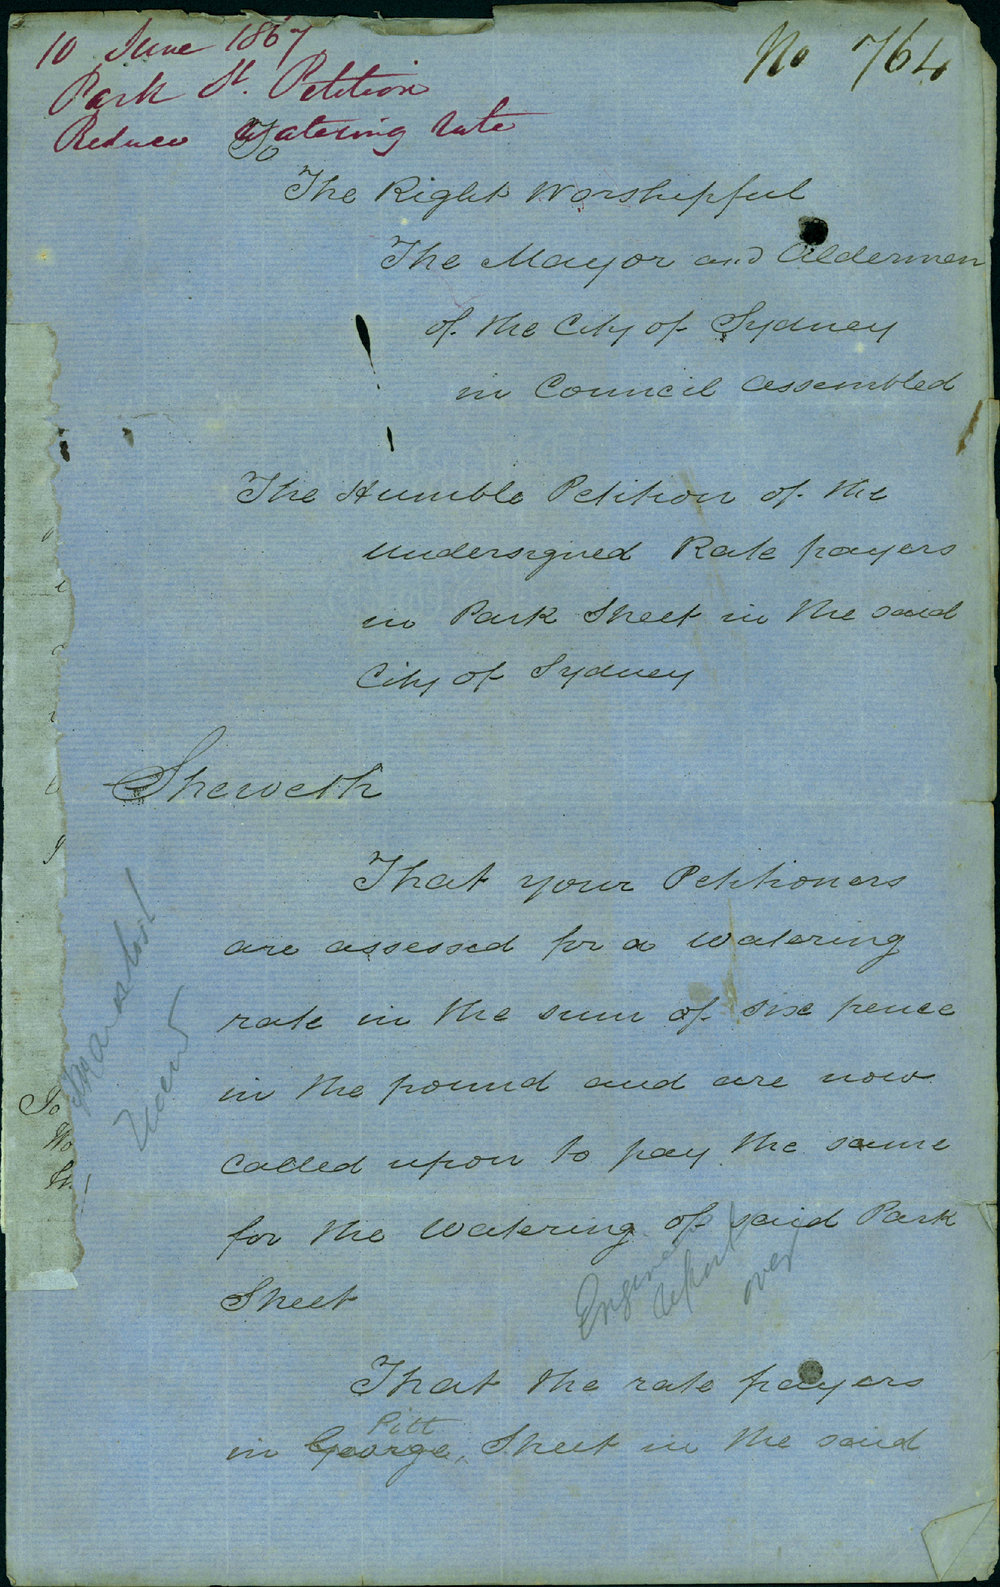 10 June 1867
No 764
Park St. Petition
Reduce Watering rate
To
The Right Worshipful
The Mayor and Aldermen
of the City of Sydney
in Council assembled
The Humble Petition of the
undersigned Rate payers
in Park Street in the said
City of Sydney
Sheweth
That your Petitioners
are assessed for a watering
rate in the sum of six pence
in the pound and are now
called upon to pay the same
for the watering of said Park
Street
Engineer
report
over
That the rate payers
Pitt
in George, Street in the said